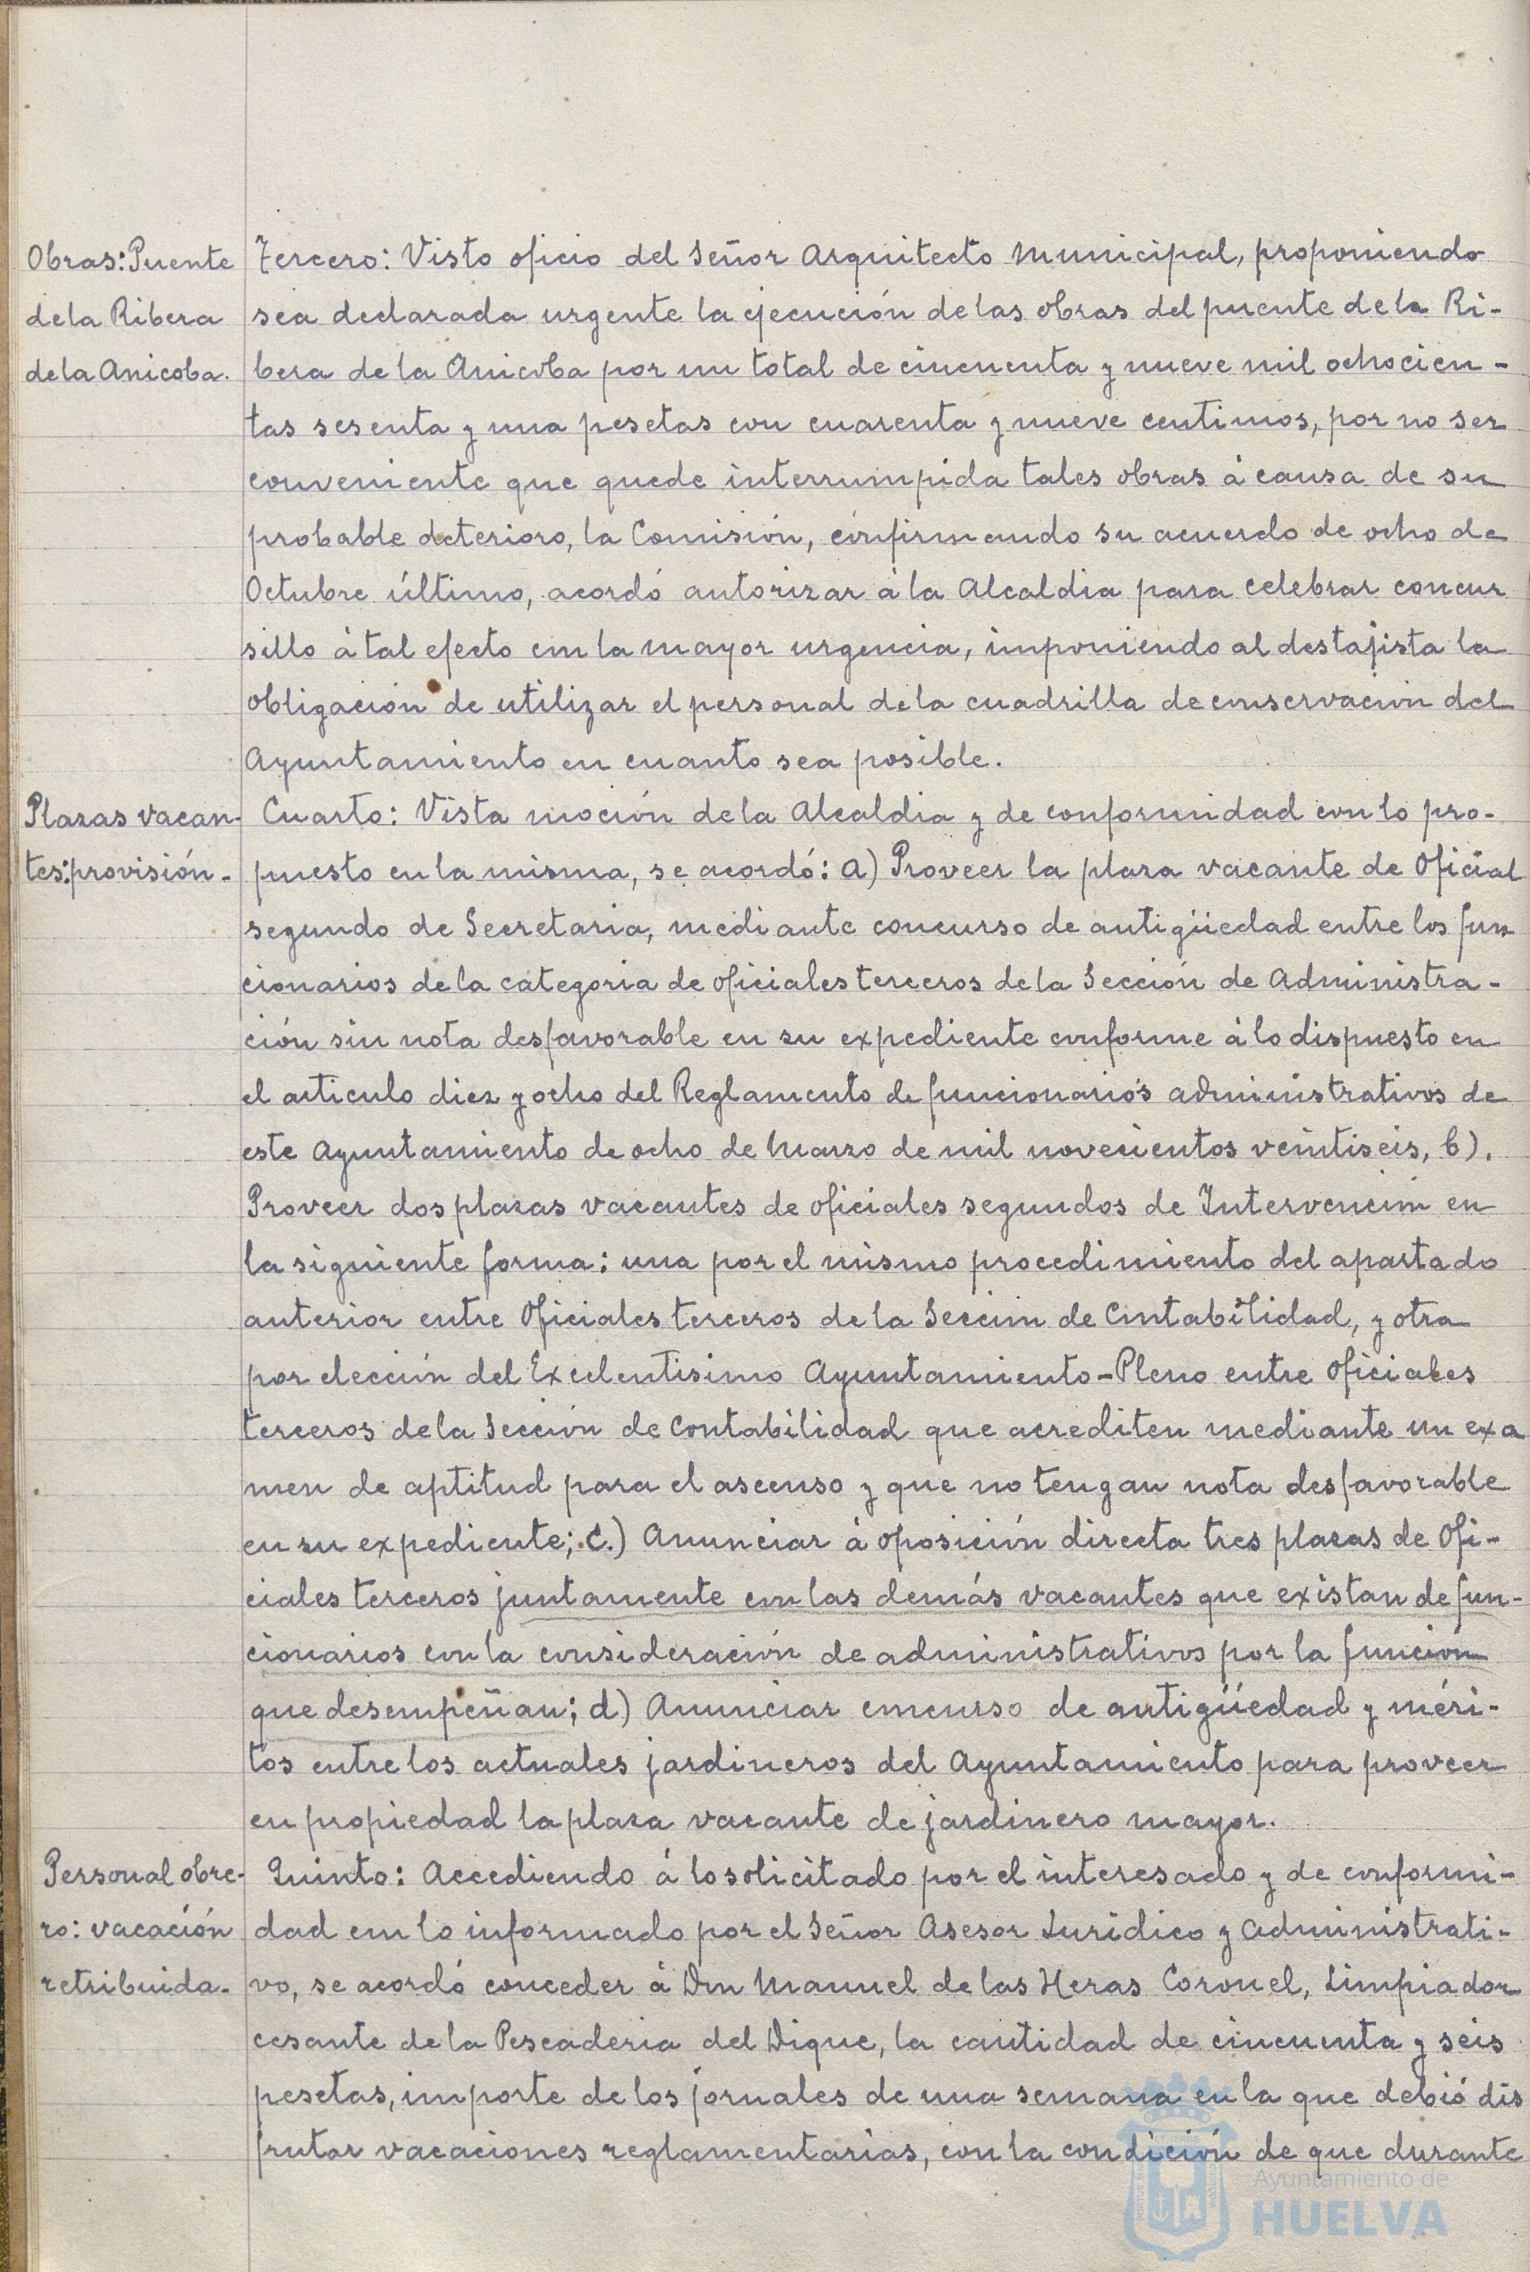 Obras: Puente
de la Ribera
de la Anicoba.
Tercero: Visto oficio del Señor Arquitecto Municipal, proponiendo
sea declarada urgente la ejecución de las obras del puente de la Ri-
bera de la Anicoba por un total de cincuenta y nueve mil ochocien-
tas sesenta y una pesetas con cuarenta y nueve centimos, por no ser
conveniente que quede interrumpida tales obras à causa de su
probable deterioro, la Comisión, confirmando su acuerdo de ocho de
Octubre último, acordó autorizar à la Alcaldia para celebrar concur
sillo à tal efecto con la mayor urgencia, imponiendo al destajista la
obligación de utilizar el personal de la cuadrilla de conservación del
Ayuntamiento en cuanto sea posible.
Plazas vacan-
tes: provisión.
Cuarto: Vista moción de la Alcaldia y de conformidad con lo pro-
puesto en la misma, se acordó: a) Proveer la plaza vacante de Oficial
segundo de Secretaria, mediante concurso de antigüedad entre los fun
cionarios de la categoria de oficiales terceros de la Sección de Administra-
ción sin nota desfavorable en su expediente conforme à lo dispuesto en
el articulo diez y ocho del Reglamento de funcionarios administrativos de
este Ayuntamiento de ocho de Marzo de mil novecientos veintiseis, b).
Proveer dos plazas vacantes de oficiales segundos de Intervención en
la siguiente forma: una por el mismo procedimiento del apartado
anterior entre Oficiales terceros de la Sección de Contabilidad, y otra
por elección del Excelentisimo Ayuntamiento-Pleno entre Oficiales
terceros de la Sección de Contabilidad que acrediten mediante un exa
men de aptitud para el ascenso y que no tengan nota desfavorable
en su expediente; c.) Anunciar à oposición directa tres plazas de Ofi-
ciales terceros juntamente con las demás vacantes que existan de fun-
cionarios con la consideración de administrativos por la función
que desempeñan; d) Anunciar concurso de antigüedad y méri-
tos entre los actuales jardineros del Ayuntamiento para proveer
en propiedad la plaza vacante de jardinero mayor.
Personal obre-
ro: vacación
retribuida.
Quinto: Accediendo á lo solicitado por el interesado y de conformi-
dad con lo informado por el Señor Asesor Juridico y Administrati-
vo, se acordó conceder à Don Manuel de las Heras Coronel, Limpiador
cesante de la Pescaderia del Dique, la cantidad de cincuenta y seis
pesetas, importe de los jornales de una semana en la que debió dis
frutar vacaciones reglamentarias, con la condición de que durante
Ayuntamiento de
HUELVA